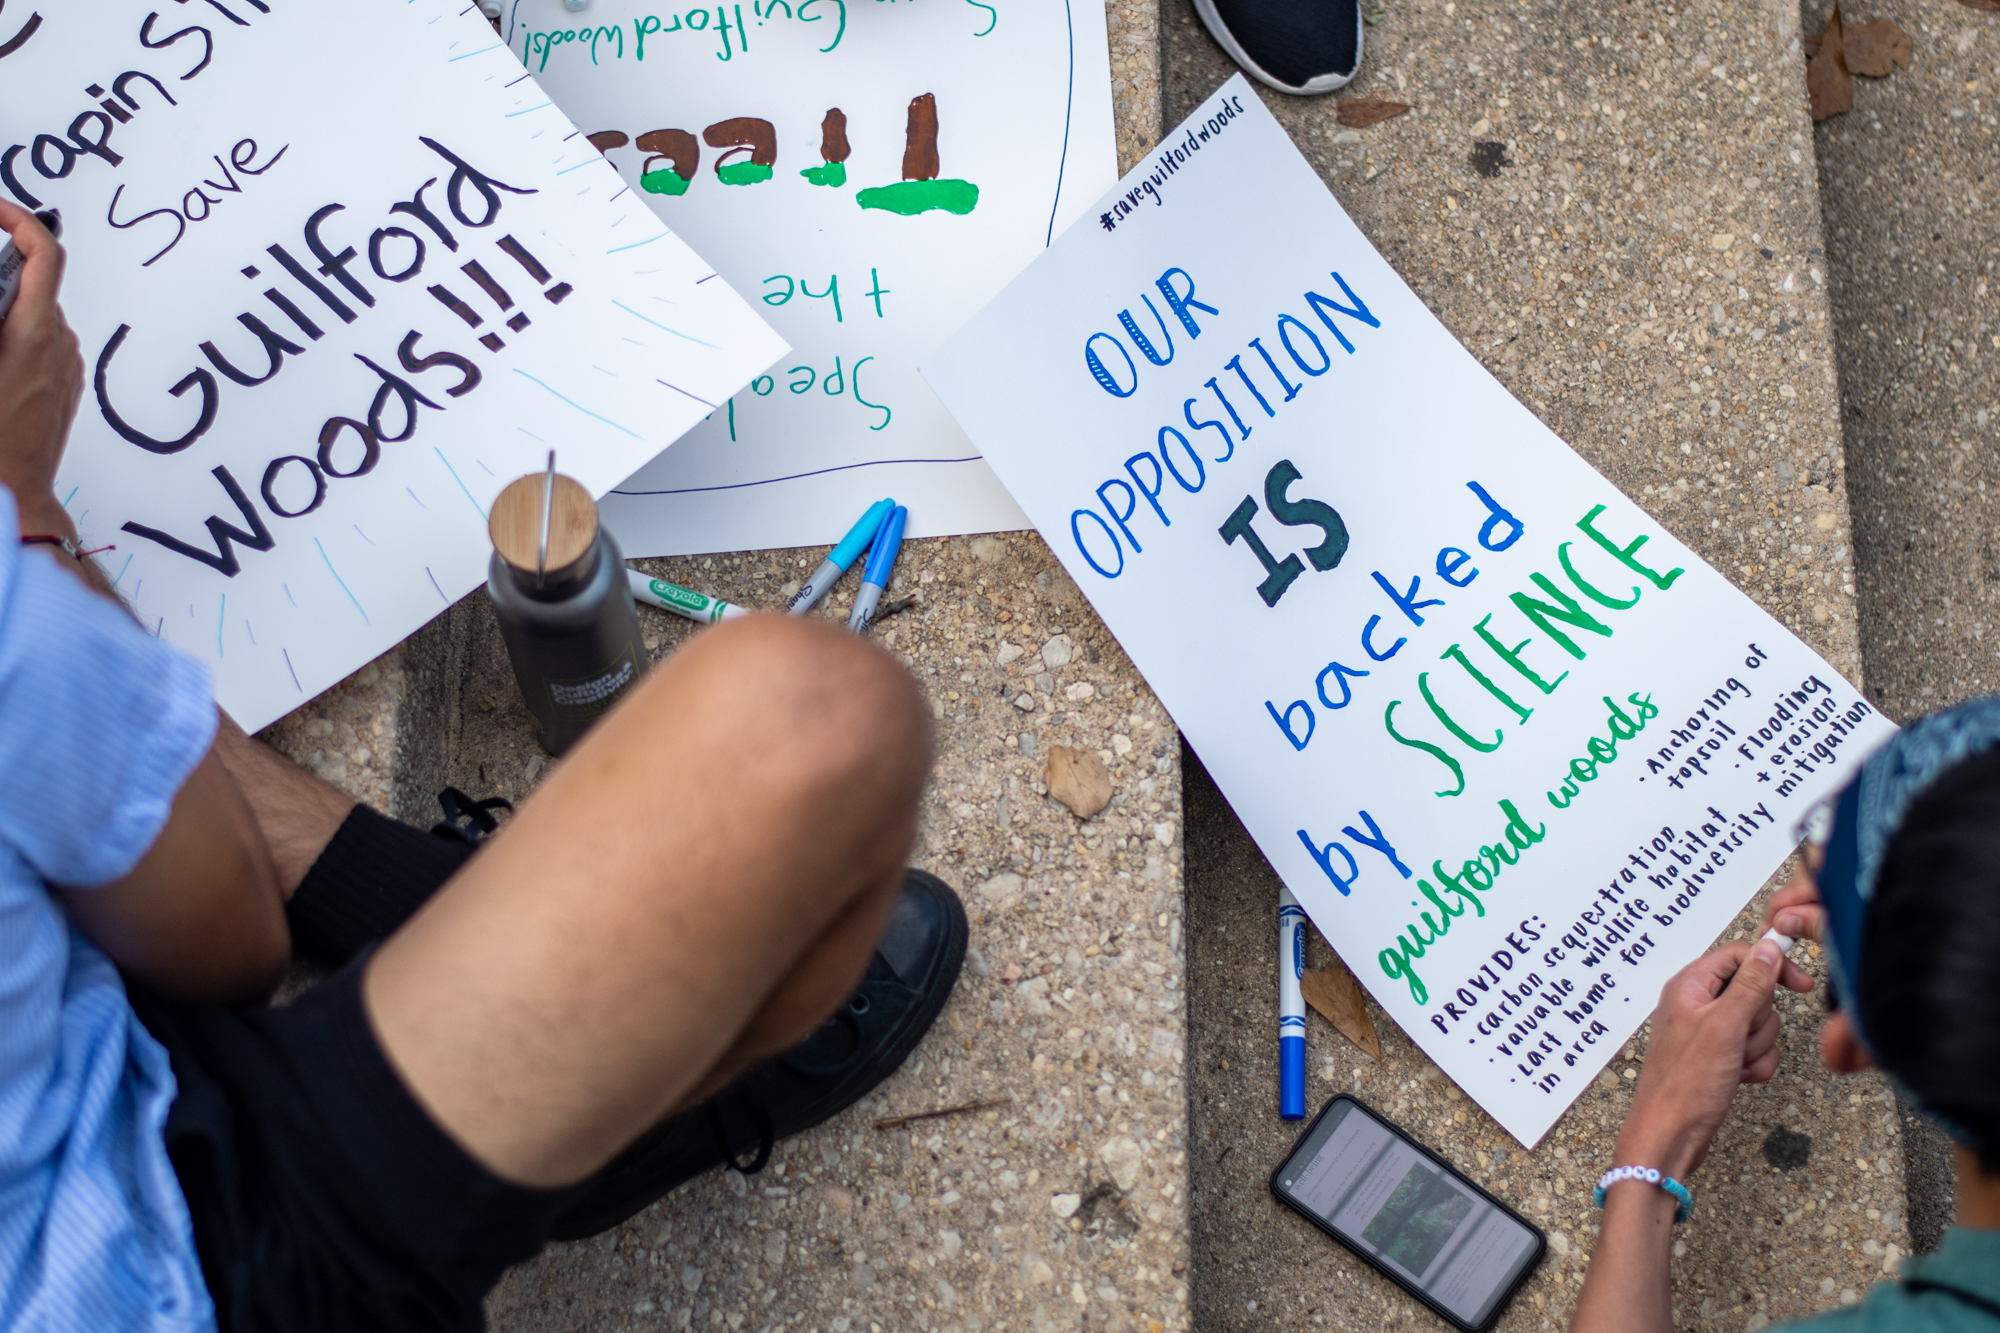 Save
Guilford
Woods!!!
Speak
the
Trees
Guilford Woods!
#saveguilfordwoods
OUR
OPPOSITION
IS
backed
by SCIENCE
guilford woods
PROVIDES:
· carbon sequestration
· valuable wildlife habitat
· Last home for biodiversity
in area
· Anchoring of
topsoil
· Flooding
+ erosion
mitigation
Crayola
Design
Culture +
Creativity
Crayola